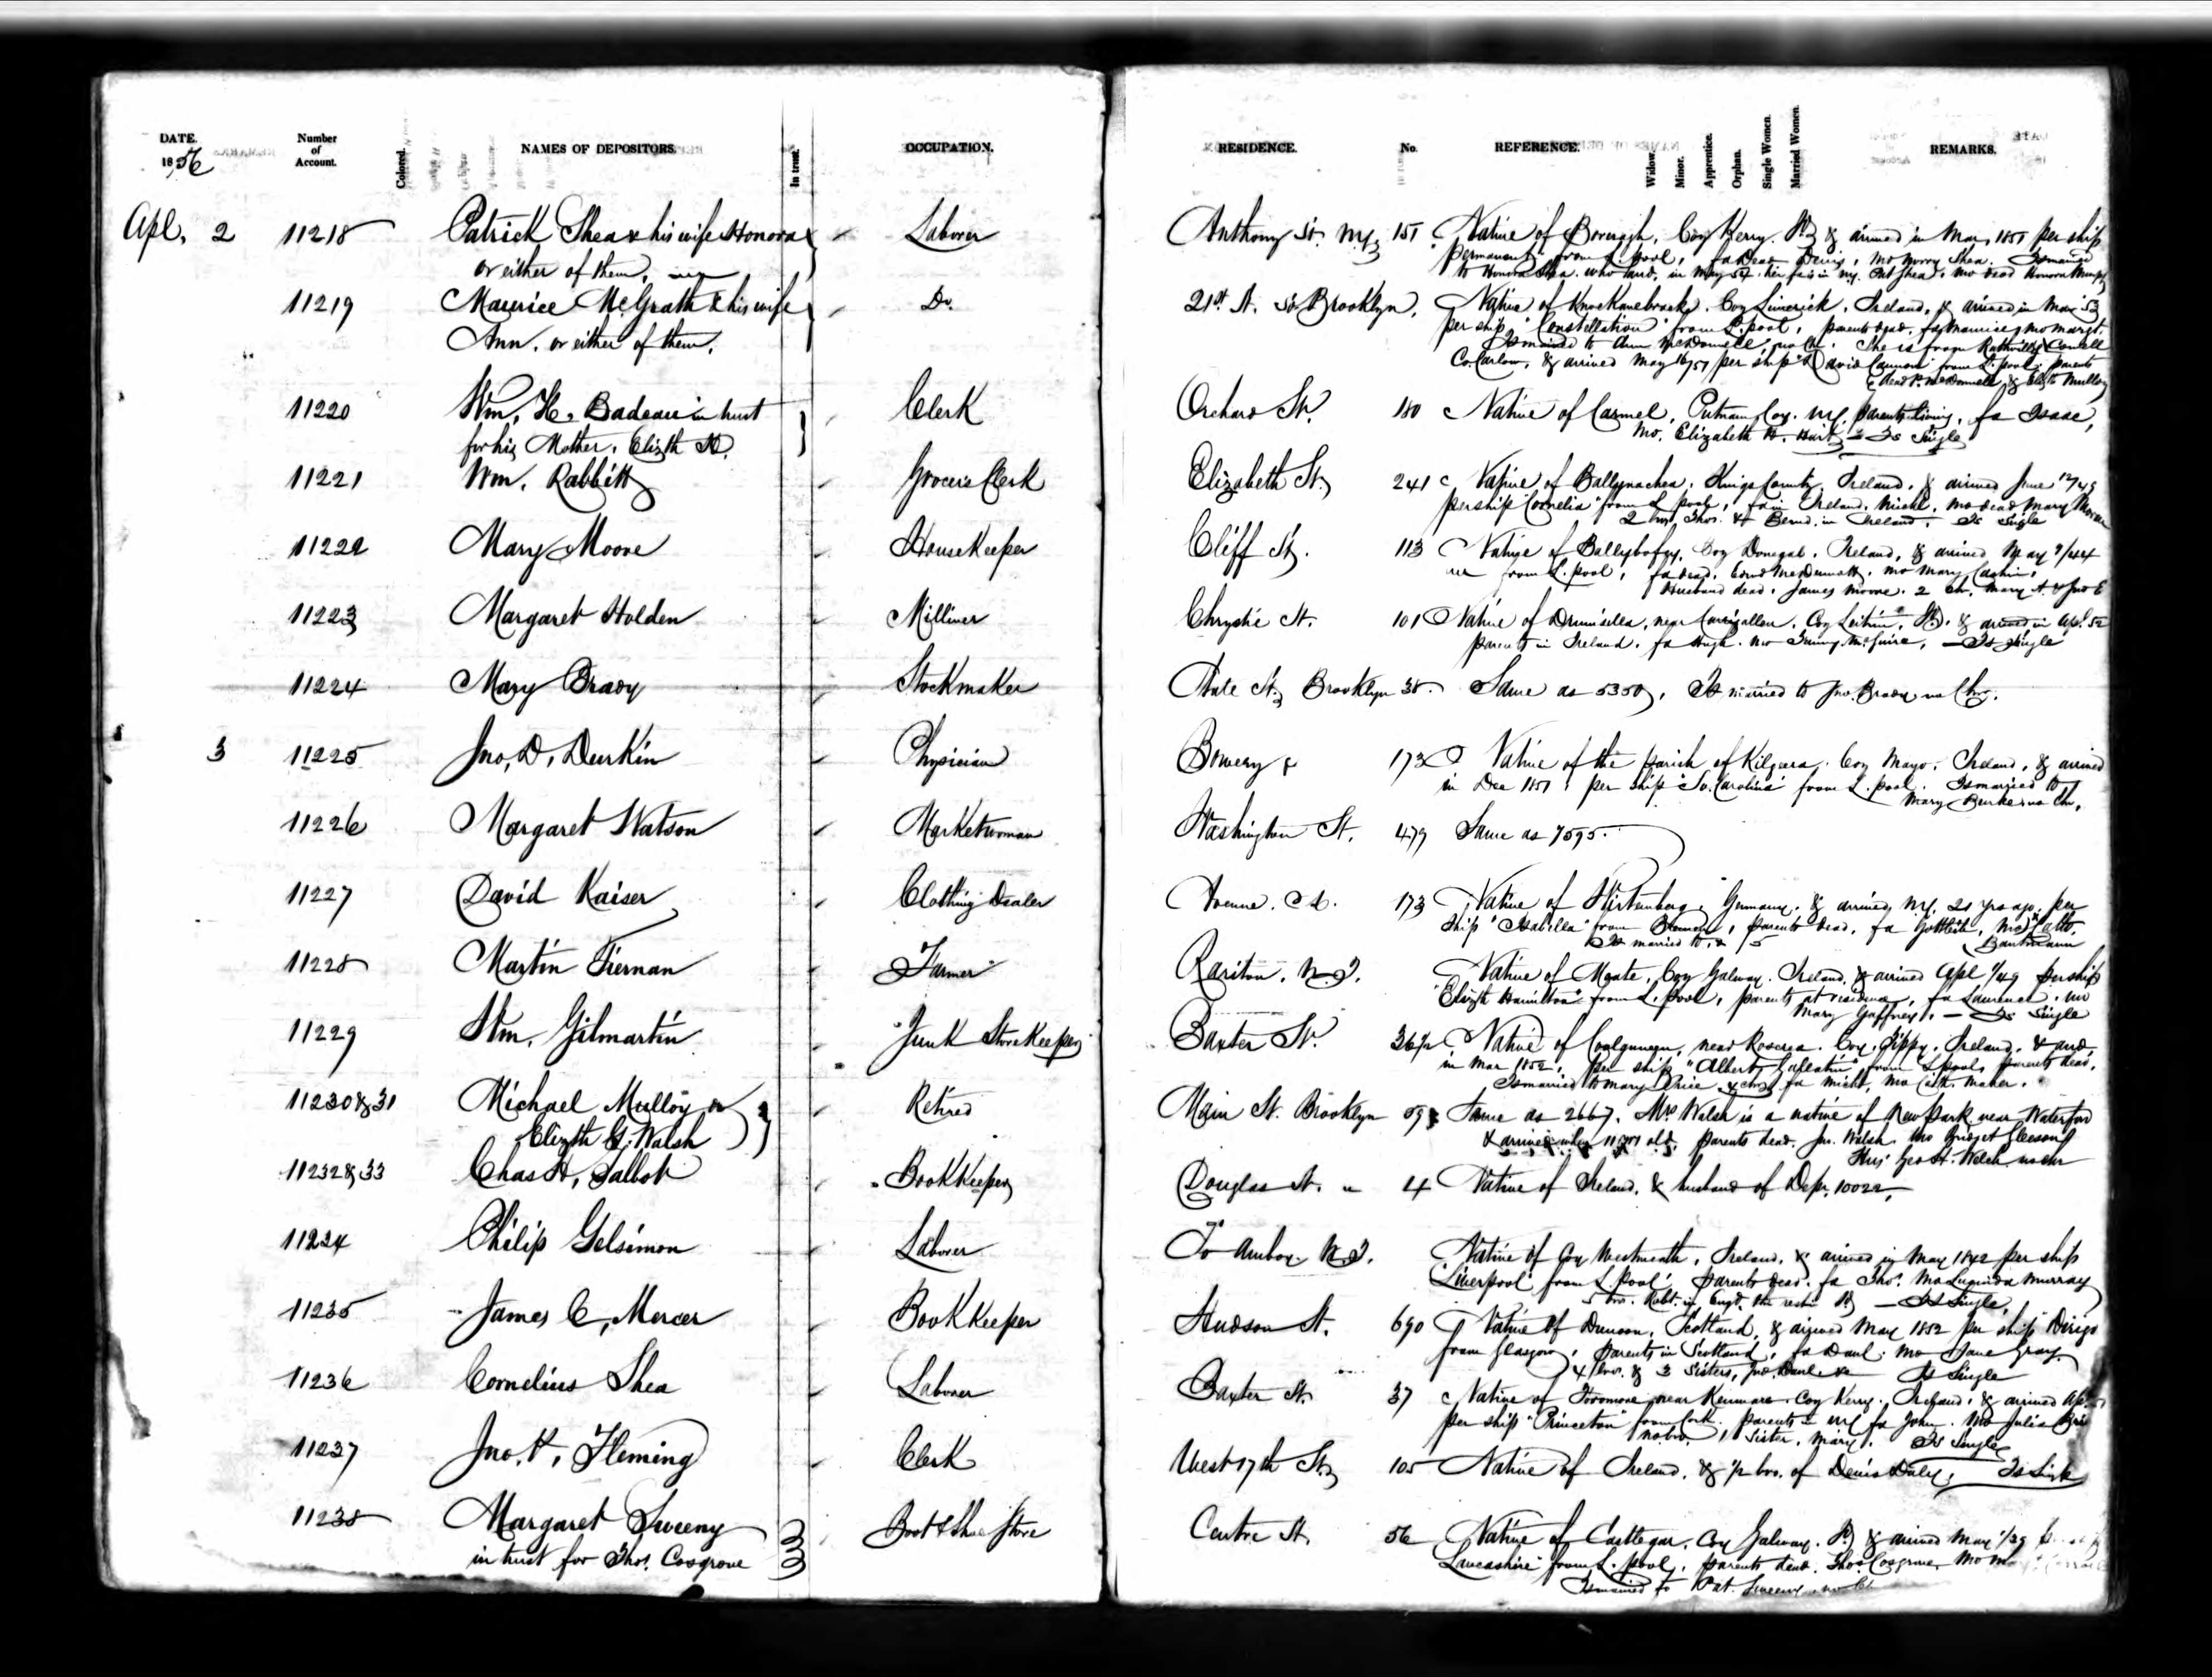 DATE. Number of Account. Colored. NAMES OF DEPOSITORS. In trust. OCCUPATION. RESIDENCE. No. REFERENCE. Widow. Minor. Apprentice. Orphan. Single Women. Married Women. REMARKS.
1856
Apl. 2 11218 Patrick Shea & his wife Honora Laborer Anthony St. N.Y. 151 Native of Coy Kerry. & arrived in Mar, 1851 per ship
or either of them, from L. pool, fa dead Denis, mo Norry Shea. Is married
to Honora Shea. who arrd. in May 54. her fa is in N.Y. Pat Shea, mo dead Honora
11219 Maurice McGrath & his wife Do. 21st St. So. Brooklyn, Native of Knockanebrack, Coy Limerick, Ireland, & arrived in Mar 53
Ann, or either of them, per ship "Constellation" from L. pool, parents dead, fa Maurice, mo Margt.
Is married to Ann McDonnell, no ch. She is from
Co. Carlow, & arrived May per ship David Cannon from L. pool, parents
dead P. McDonnell & Elizth Mulloy
11220 Wm. H. Badeau in trust Clerk Orchard St. 180 Native of Carmel, Putnam Coy. N.Y. parents living, fa Isaac,
for his Mother, Elizth H. mo. Elizabeth H. Hart, Is Single
11221 Wm. Rabbitt Grocers Clerk Elizabeth St. 241 Native of Kings County, Ireland, & arrived June 12/49
per ship Cornelia from L. pool, fa in Ireland, Michl, mo dead Mary
2 bro. Thos. & Bernd. in Ireland. Is Single
11222 Mary Moore HouseKeeper Cliff St. 113 Native of Ballybofey, Coy Donegal, Ireland, & arrived May 9/44
from L. pool, fa dead, McDermott, mo Mary
Husband dead. James Moore. 2 ch. Mary A. & Jno E
11223 Margaret Holden Milliner Chrystie St. 101 Native of near Carrigallen, Coy Leitrim, & arrived in Apl. 52
parents in Ireland. fa Hugh. mo McGuire, Is Single
11224 Mary Brady Stockmaker State St. Brooklyn 38. Same as 5350, Is married to Jno. Brady no Chn.
3 11225 Jno. D. Durkin Physician Bowery 173 Native of the parish of Coy Mayo, Ireland, & arrived
in Dec 1851, per ship "So. Carolina" from L. pool. Is married to
Mary Burke no Ch.
11226 Margaret Watson Marketwoman Washington St. 479 Same as 7595.
11227 David Kaiser Clothing Dealer Avenue. 173 Native of Wirtemberg, Germany, & arrived N.Y. 21 yrs ago, per
ship "Isabella" from Bremen, parents dead, fa Gottlieb, mo
Is married to, & 5
11228 Martin Tiernan Farmer Rariton, N.J. Native of Moate, Coy Galway, Ireland, & arrived Apl 1/49 per ship
"Elizth Hamilton" from L. pool, parents at residence, fa Lawrence, mo
Mary Gaffney, — Is Single
11229 Wm. Gilmartin Junk StoreKeeper Baxter St. 36½ Native of near Roscrea, Coy. Tippy. Ireland, & arrd.
in Mar 1852, per ship "Albert Gallatin" from L. pool, parents dead,
Is married to Mary Price fa Michl, mo Cath. Maher.
11230 & 31 Michael Mulloy or Retired Main St. Brooklyn 59 Same as 2667. Mrs Walsh is a native of New Park near Waterford
Elizth G. Walsh & arrived when 11 yrs old, parents dead, Jno. Walsh mo Bridget Gleeson
Hus. Geo A. Welch no chn
11232 & 33 Chas H. Talbot BookKeeper Douglas St. " 14 Native of Ireland, & husband of Depr. 10022,
11234 Philip Gelsimon Laborer So Amboy N.J. Native of Coy Westmeath, Ireland, & arrived in May 1842 per ship
"Liverpool" from L. pool, parents dead, fa Thos. mo Lucinda Murray
5 bro. Robt. in Engd. the rest in — Is Single,
11235 James C. Mercer BookKeeper Hudson St. 690 Native of Dunoon, Scotland, & arrived May 1852 per ship Dirigo
from Glasgow, parents in Scotland, fa Danl. mo Jane Gray,
4 bro. & 3 Sisters, Jno. Danl &c Is Single
11236 Cornelius Shea Laborer Baxter St. 37 Native of near Kenmare Coy Kerry, Ireland, & arrived
per ship "Princeton" from Cork. parents in N.Y. fa John. mo Julia
no bro. 1 sister, Mary. Is Single
11237 Jno. K. Fleming Clerk West 17th St. 105 Native of Ireland, & ½ bro. of Denis Daly, Is
11238 Margaret Sweeny Boot & Shoe Store Centre St. 56 Native of Castlegar, Coy Galway, & arrived May 1/39
in trust for Thos. Cosgrove Lancashire from L. pool, parents dead, Thos Cosgrove, mo
Is married to Pat. Sweeny no